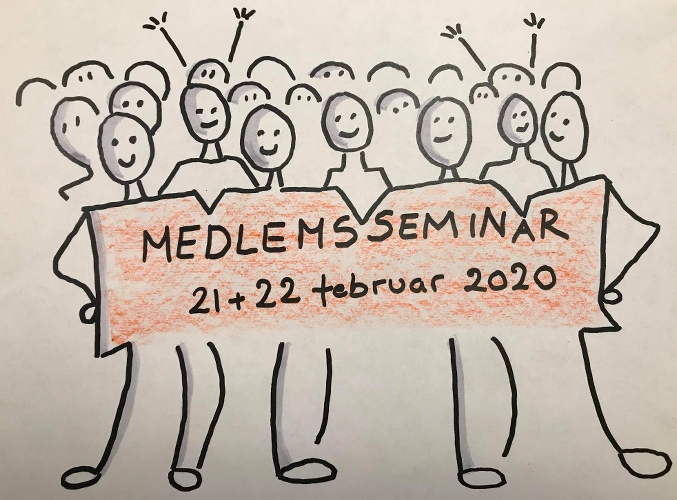 MEDLEMSSEMINAR
21+22 februar 2020